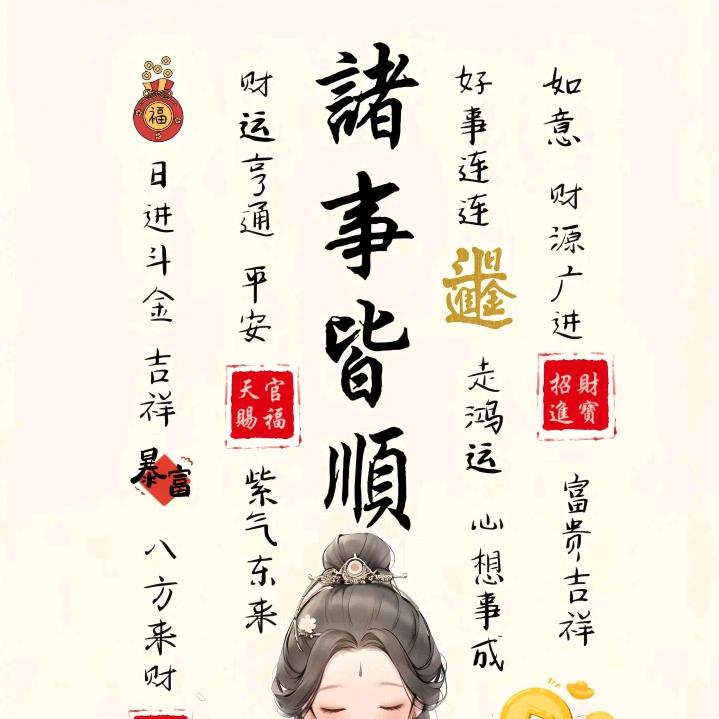 如意 财源广进
招財進寶
富贵吉祥
好事连连
日進斗金
走鸿运 心想事成
諸事皆順
财运亨通 平安
天官賜福
紫气东来
福
日进斗金 吉祥
暴富
八方来财